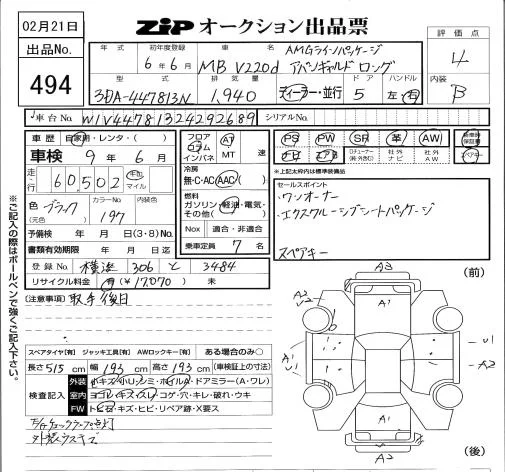 02月21日
ZIP オークション出品票
出品No.
494
年式 初年度登録 車名
6年6月 MB V220d AMGラインパッケージ アバンギャルド ロング
評価点
4
型式 排気量 ドア ハンドル
3DA-447813N 1,940 ディーラー・並行 5 左・右
内装
B
車台No. W1V44781324292689 シリアルNo.
車歴 自家用・レンタ・( )
車検 9年6月
走行 60502 km マイル
色 ブラック (元色) カラーNo. 197 内装色
予備検 年 月 日(3・8)No.
書類有効期限 年 月 日迄
登録No. 横浜 306 と 3484
リサイクル料金 有(¥17,070) 未
フロア コラム インパネ AT MT 速
冷房 無・C・AC・AAC( )
燃料 ガソリン・軽油・電気・その他( )
Nox 適合・非適合
乗車定員 7名
PS PW SR 革 AW
ロ.チューナー(純・外含む) 社外ナビ 社外AW スペアキー
※上記太枠内は標準装備品
セールスポイント
ワンオーナー
エクスクルーシブシートパッケージ
スペアキー
(注意事項) 取手後日
スペアタイヤ[有] ジャッキ工具[有] AWロックキー[有] ある場合のみ○
長さ515cm 幅193cm 高さ193cm (車検証上の寸法)
検査記入
外装 小キズ・小U.シミ・ホイルA・ドアミラー(A・ワレ)
室内 ヨゴレ・キズ・スレ・コゲ・穴・キレ・破れ・ウキ
FW トビ石・キズ・ヒビ・リペア跡・X要ス
外装ウスキズ
(前)
A3
A2
A1
U1
A1
U1
A2
A1
A3
(後)
※ご記入の際はボールペンで強くご記入下さい。